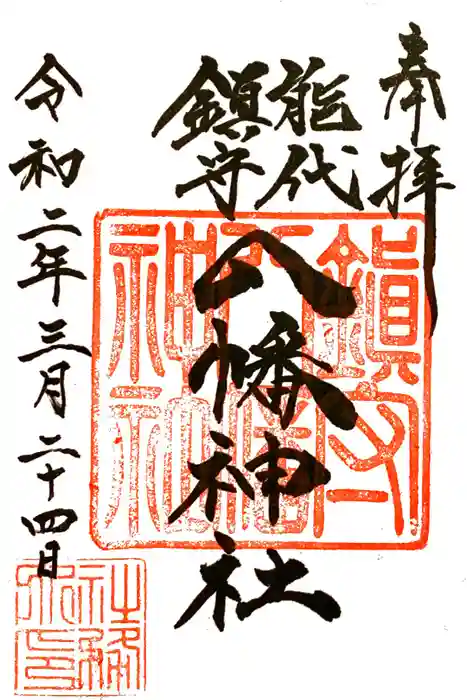 奉拝
能代
鎮守
八幡神社
令和二年三月二十四日
鎮守
八幡
神社
社務
之印